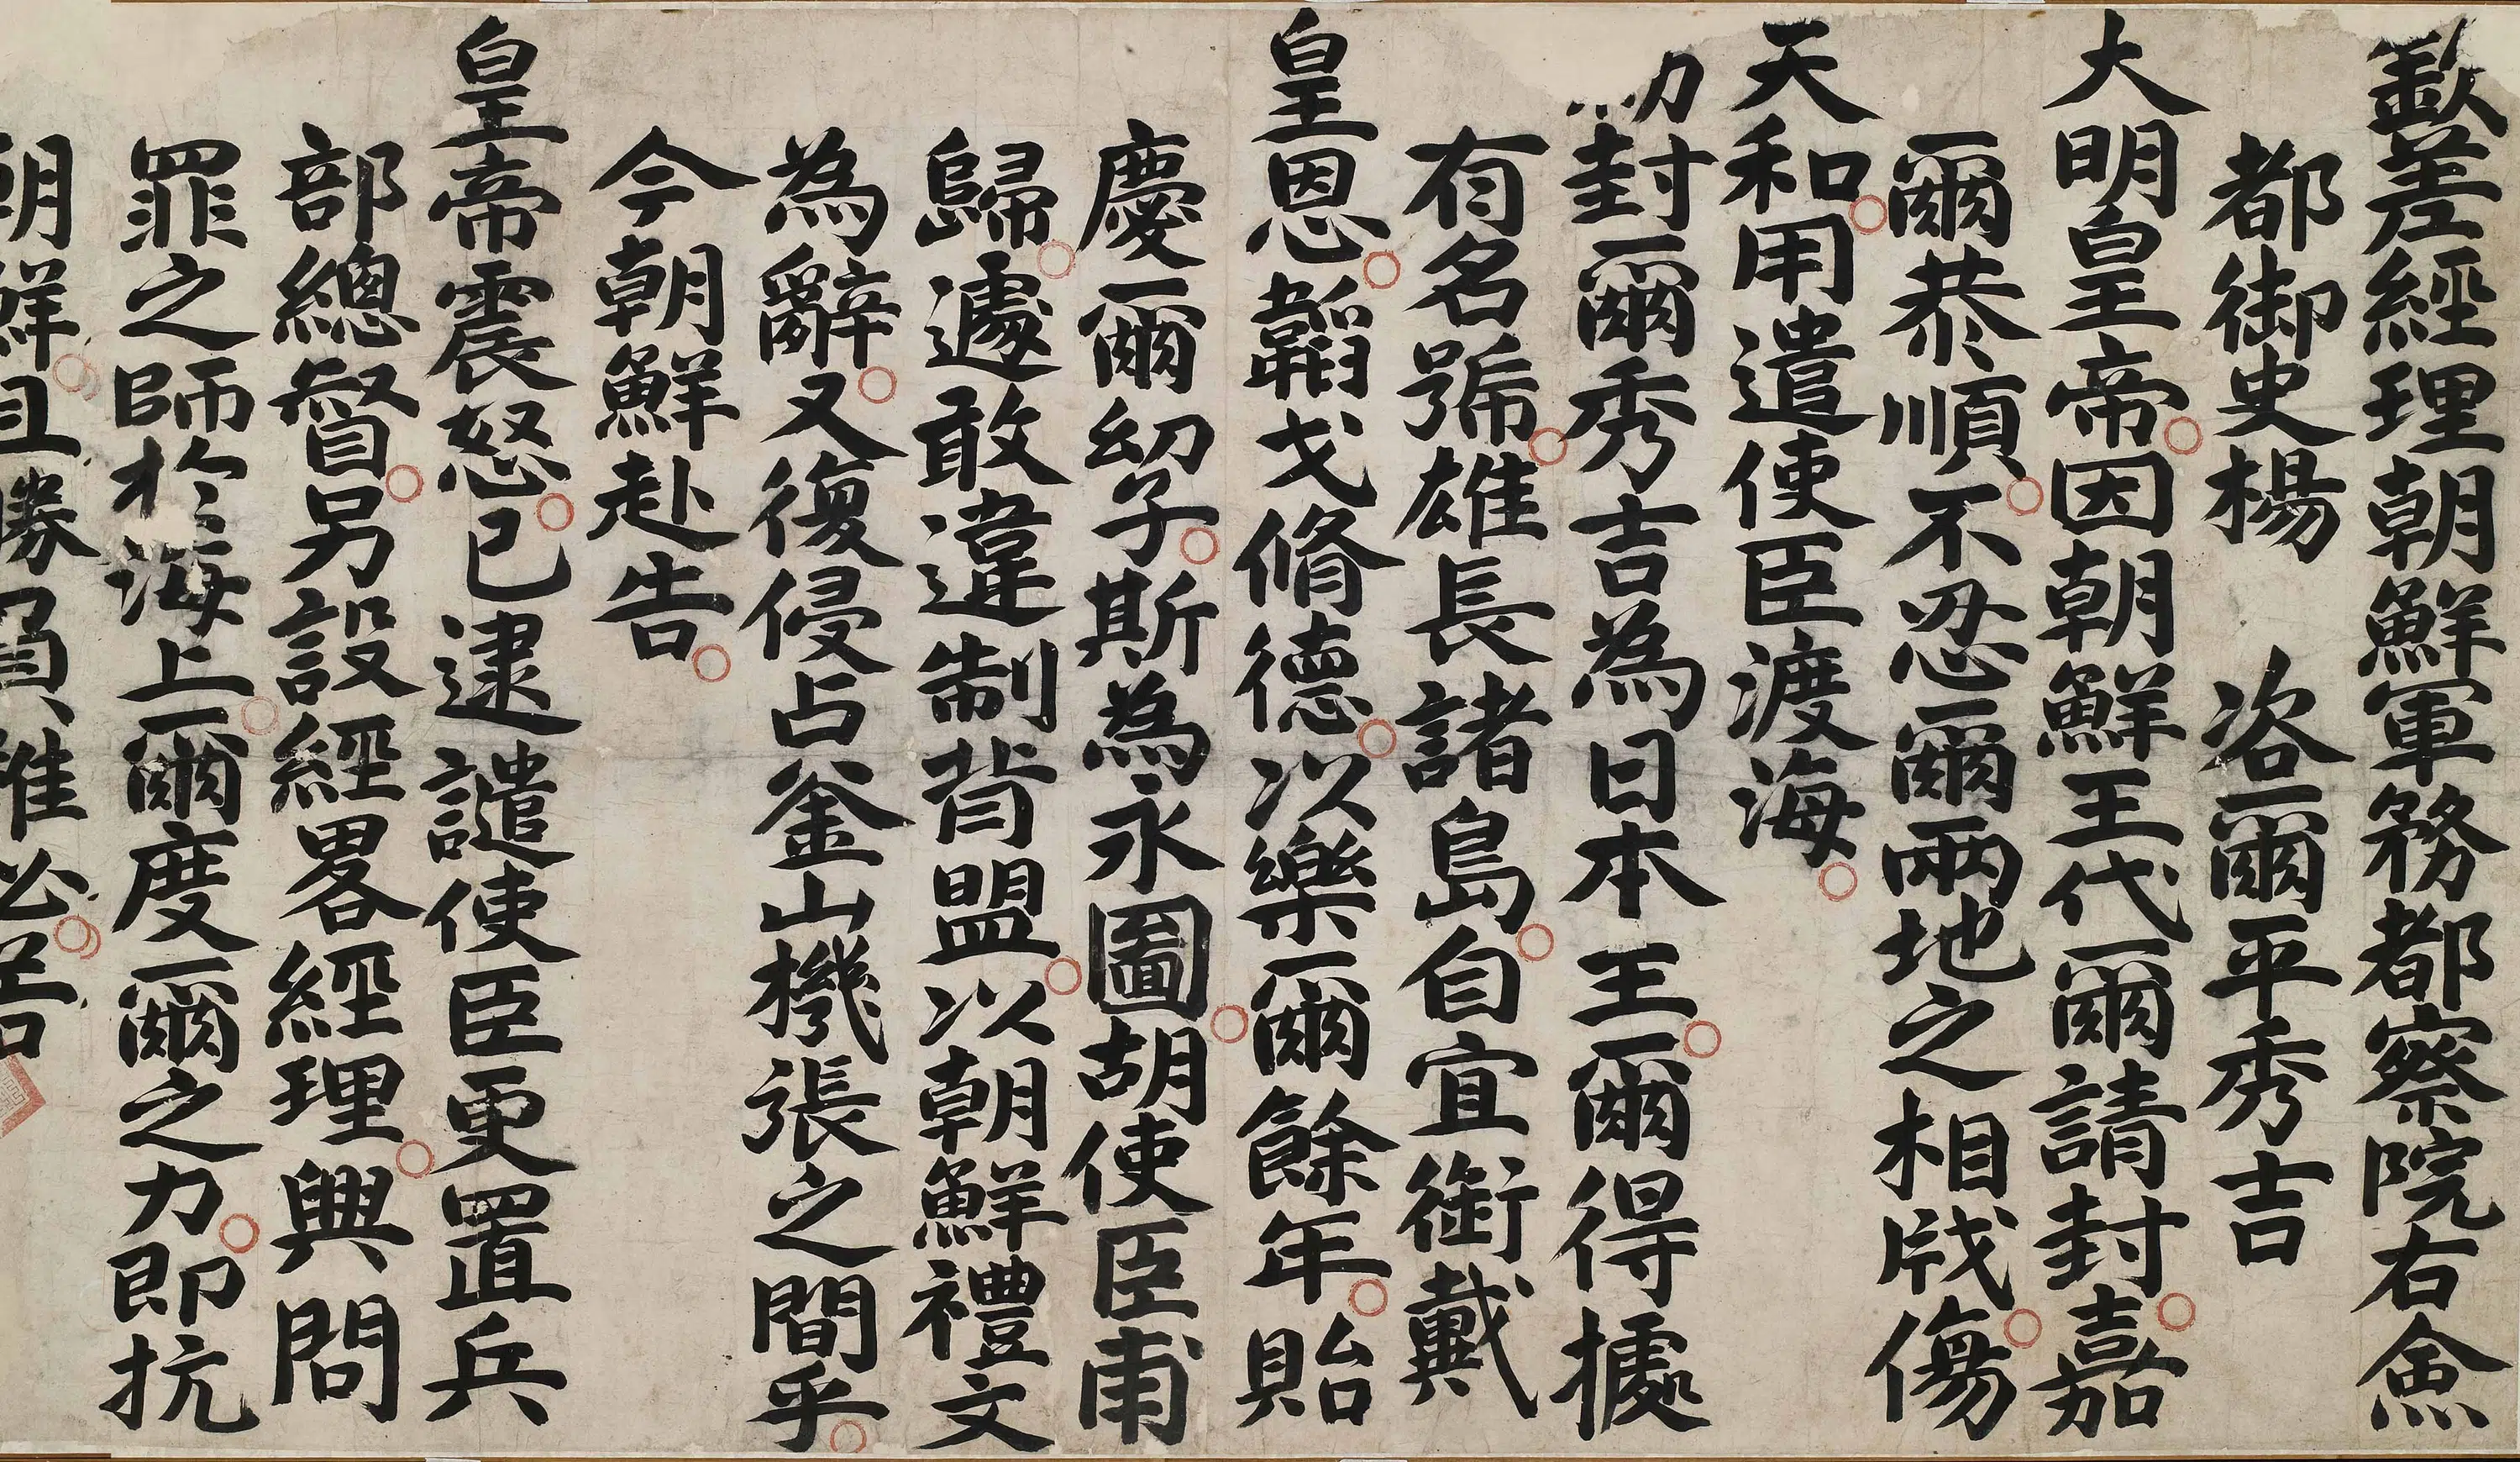 欽差經理朝鮮軍務都察院右僉
都御史楊　咨爾平秀吉
大明皇帝因朝鮮王代爾請封嘉
爾恭順不忍爾兩地之相戕傷
天和用遣使臣渡海
勑封爾秀吉為日本王爾得據
有名號雄長諸島自宜銜戴
皇恩韜戈脩德以樂爾餘年貽
慶爾幼子斯為永圖胡使臣甫
歸遽敢違制背盟以朝鮮禮文
為辭又復侵占釜山機張之間乎
今朝鮮赴告
皇帝震怒已逮譴使臣更置兵
部總督另設經畧經理興問
罪之師於海上爾度爾之力即抗
朝鮮且勝負